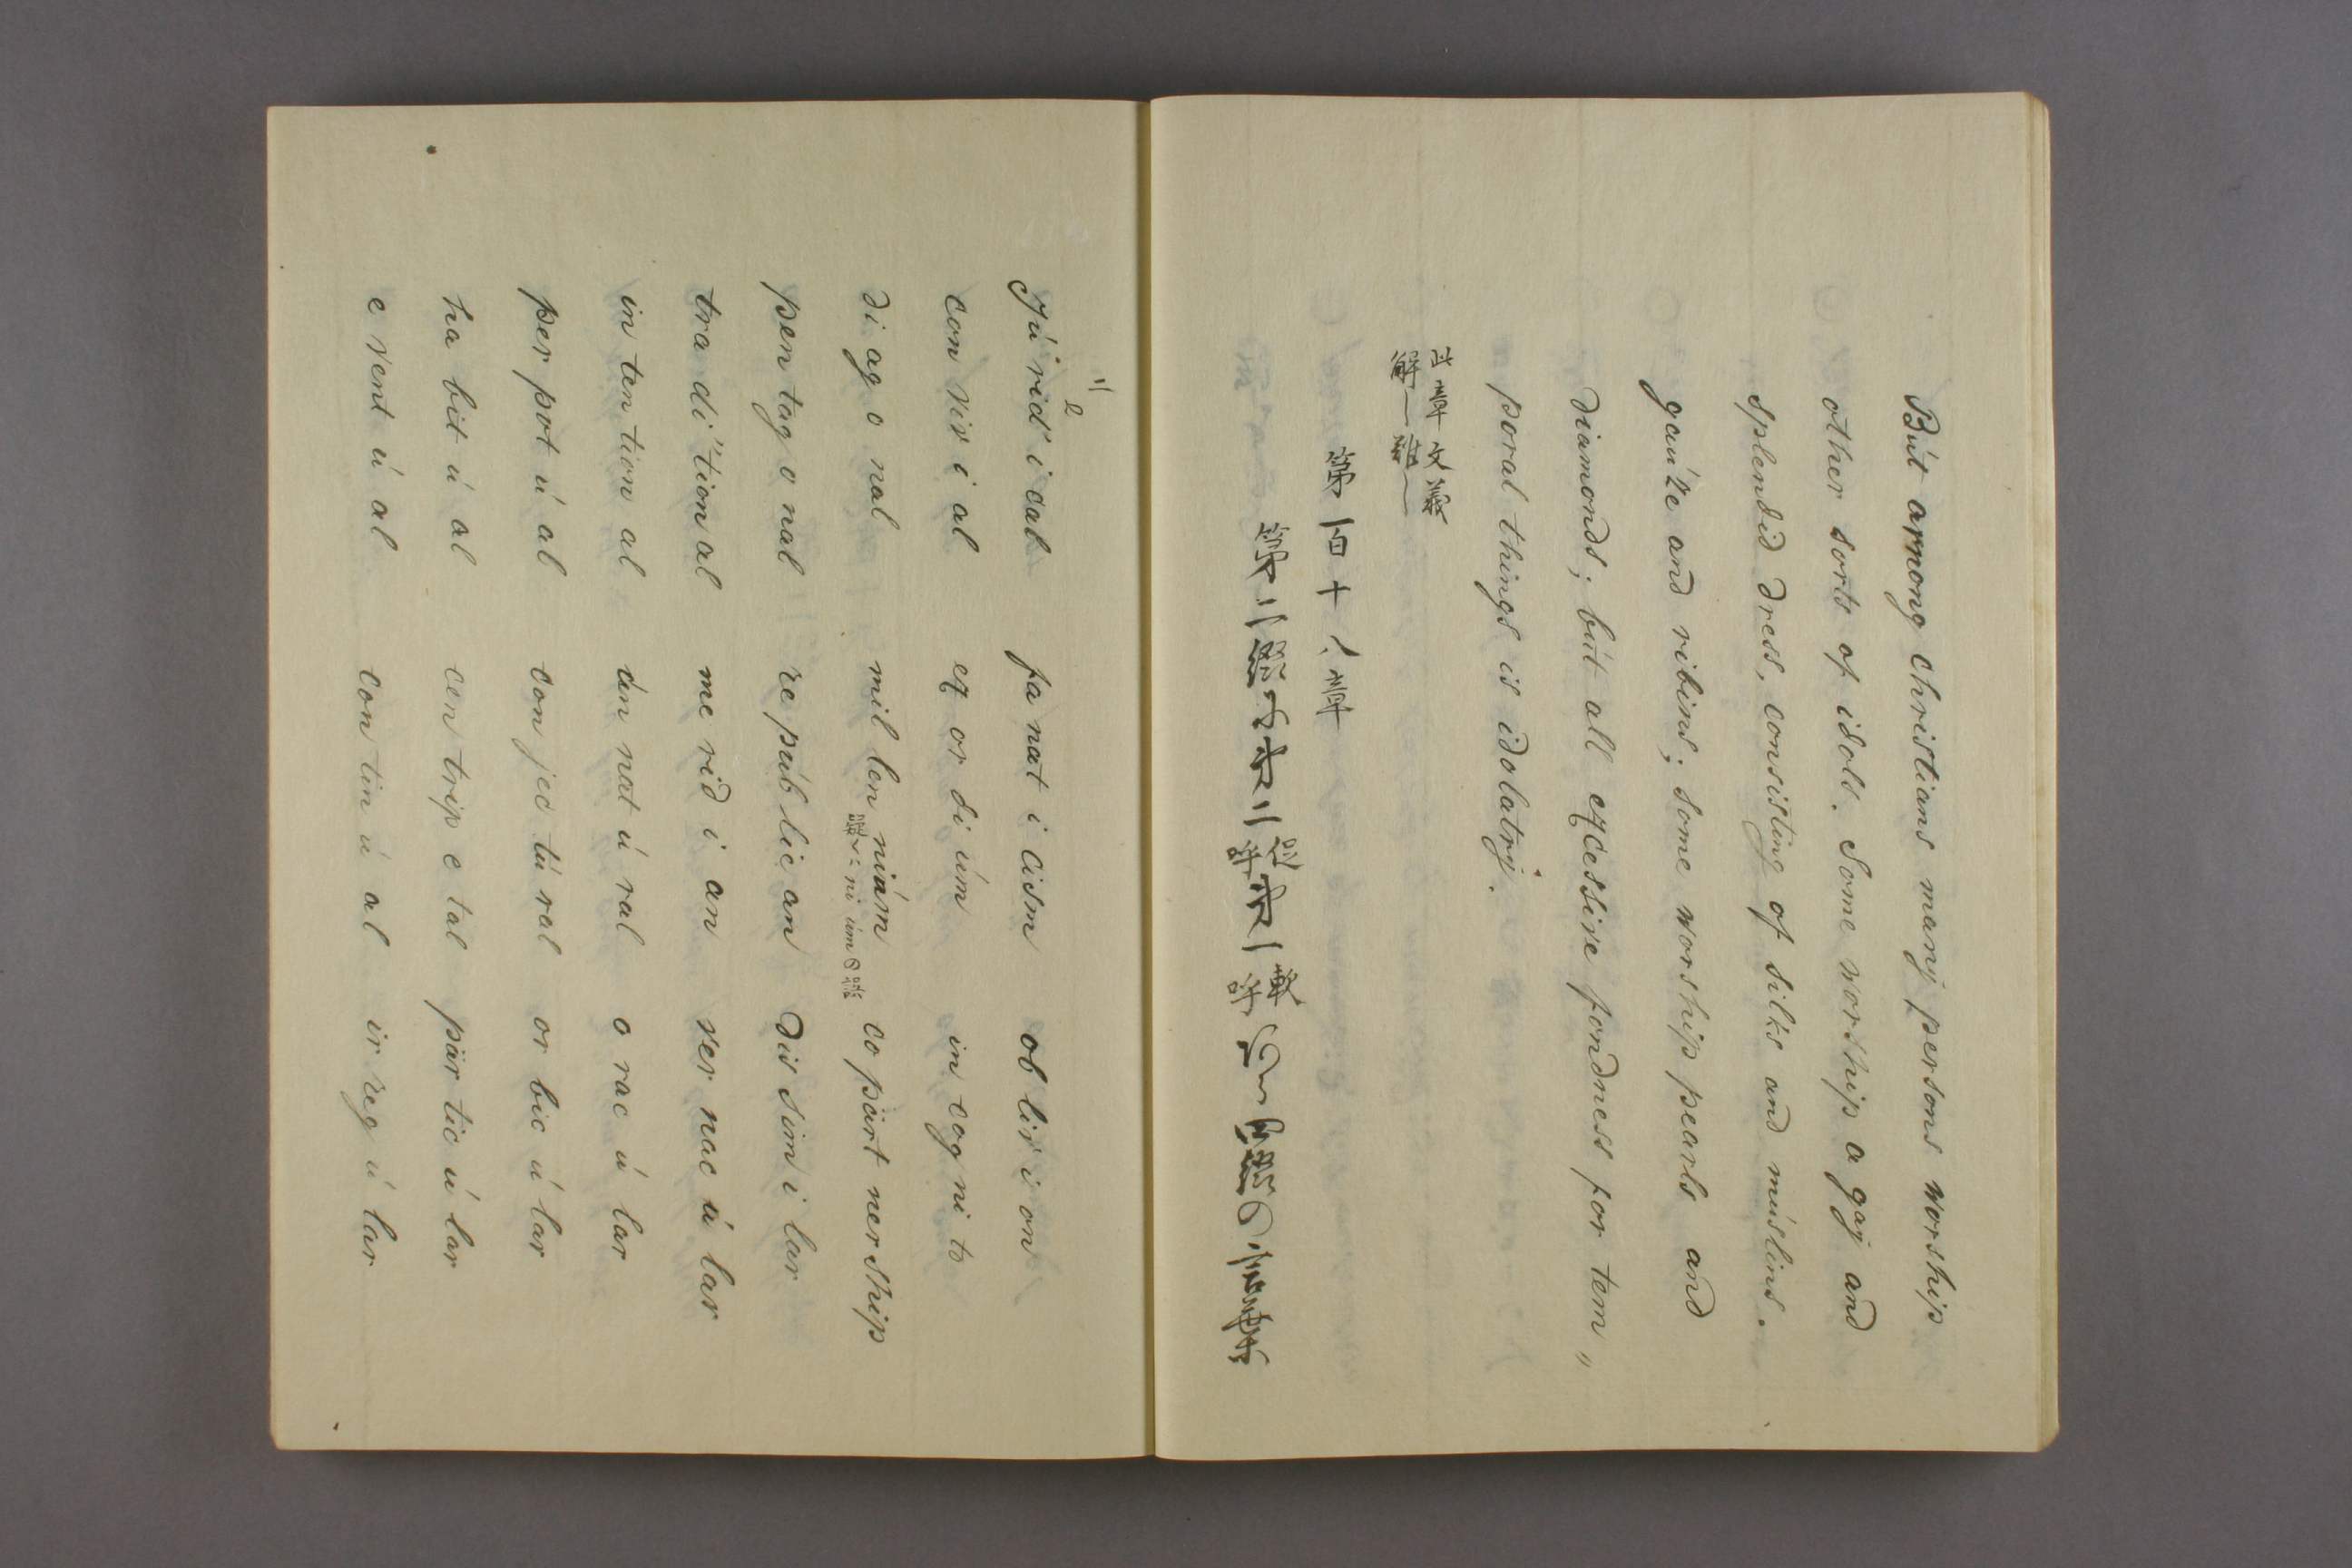 But among christians many persons worship
other sorts of idols. Some worship a gay and
splendid dress, consisting of silks and muslins.
gauze and ribins; some worship pearls and
diamonds; but all excessive fondness for tem〃
poral things is idolatry.
此章文義
解し難し
第一百十八章
第二綴
Ju rid i cal fa nat i cism ob liv i on
con viv i al ex or di um in cog ni to
di ag o nal mil len nium co part ner ship
ni um の
pen tag o nal re pub lic an dis sim i lar
tra di"tion al me rid i an ver nac u lar
in ten tion al un nat u ral o rac u lar
per pet u al con jec tu ral or bic u lar
ha bit u al cen trip e tal par tic u lar
e vent u al con tin u al ir reg u lar